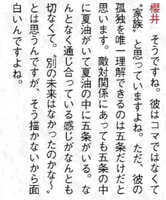 櫻井　そうですね。彼はコマではなくて
〝家族〟と思っていますよね。ただ、彼の
孤独を唯一理解できるのは五条だけだと
思います。敵対関係にあっても五条の中
に夏油がいて夏油の中に五条がいる。な
んとなく通じ合っている感じがなんとも
切なくて。別の未来はなかったのかな〜
とは思うんですが、そう描かないから面
白いんですよね。